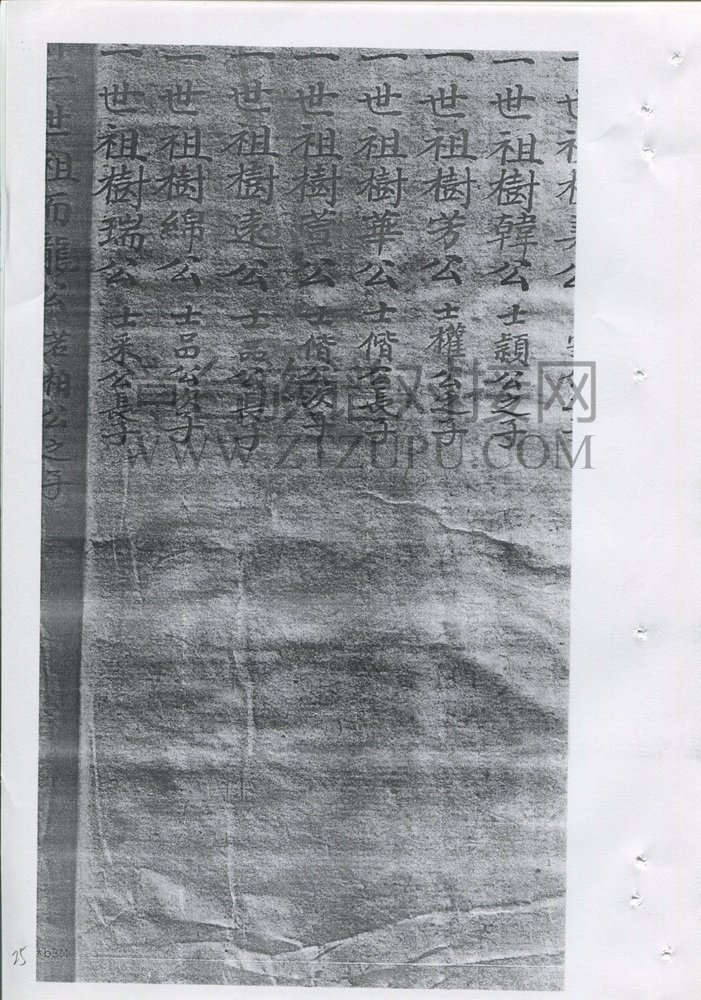 一世祖樹韓公士顈公之子
一世祖樹芳公士權公之子
一世祖樹華公士偕公長子
一世祖樹萱公士偕公次子
一世祖樹遠公士品公長子
一世祖樹綿公士品公次子
一世祖樹瑞公士采公長子
世祖而龍公若相公之子
族譜对接网
WWW.ZIZUPU.COM
25